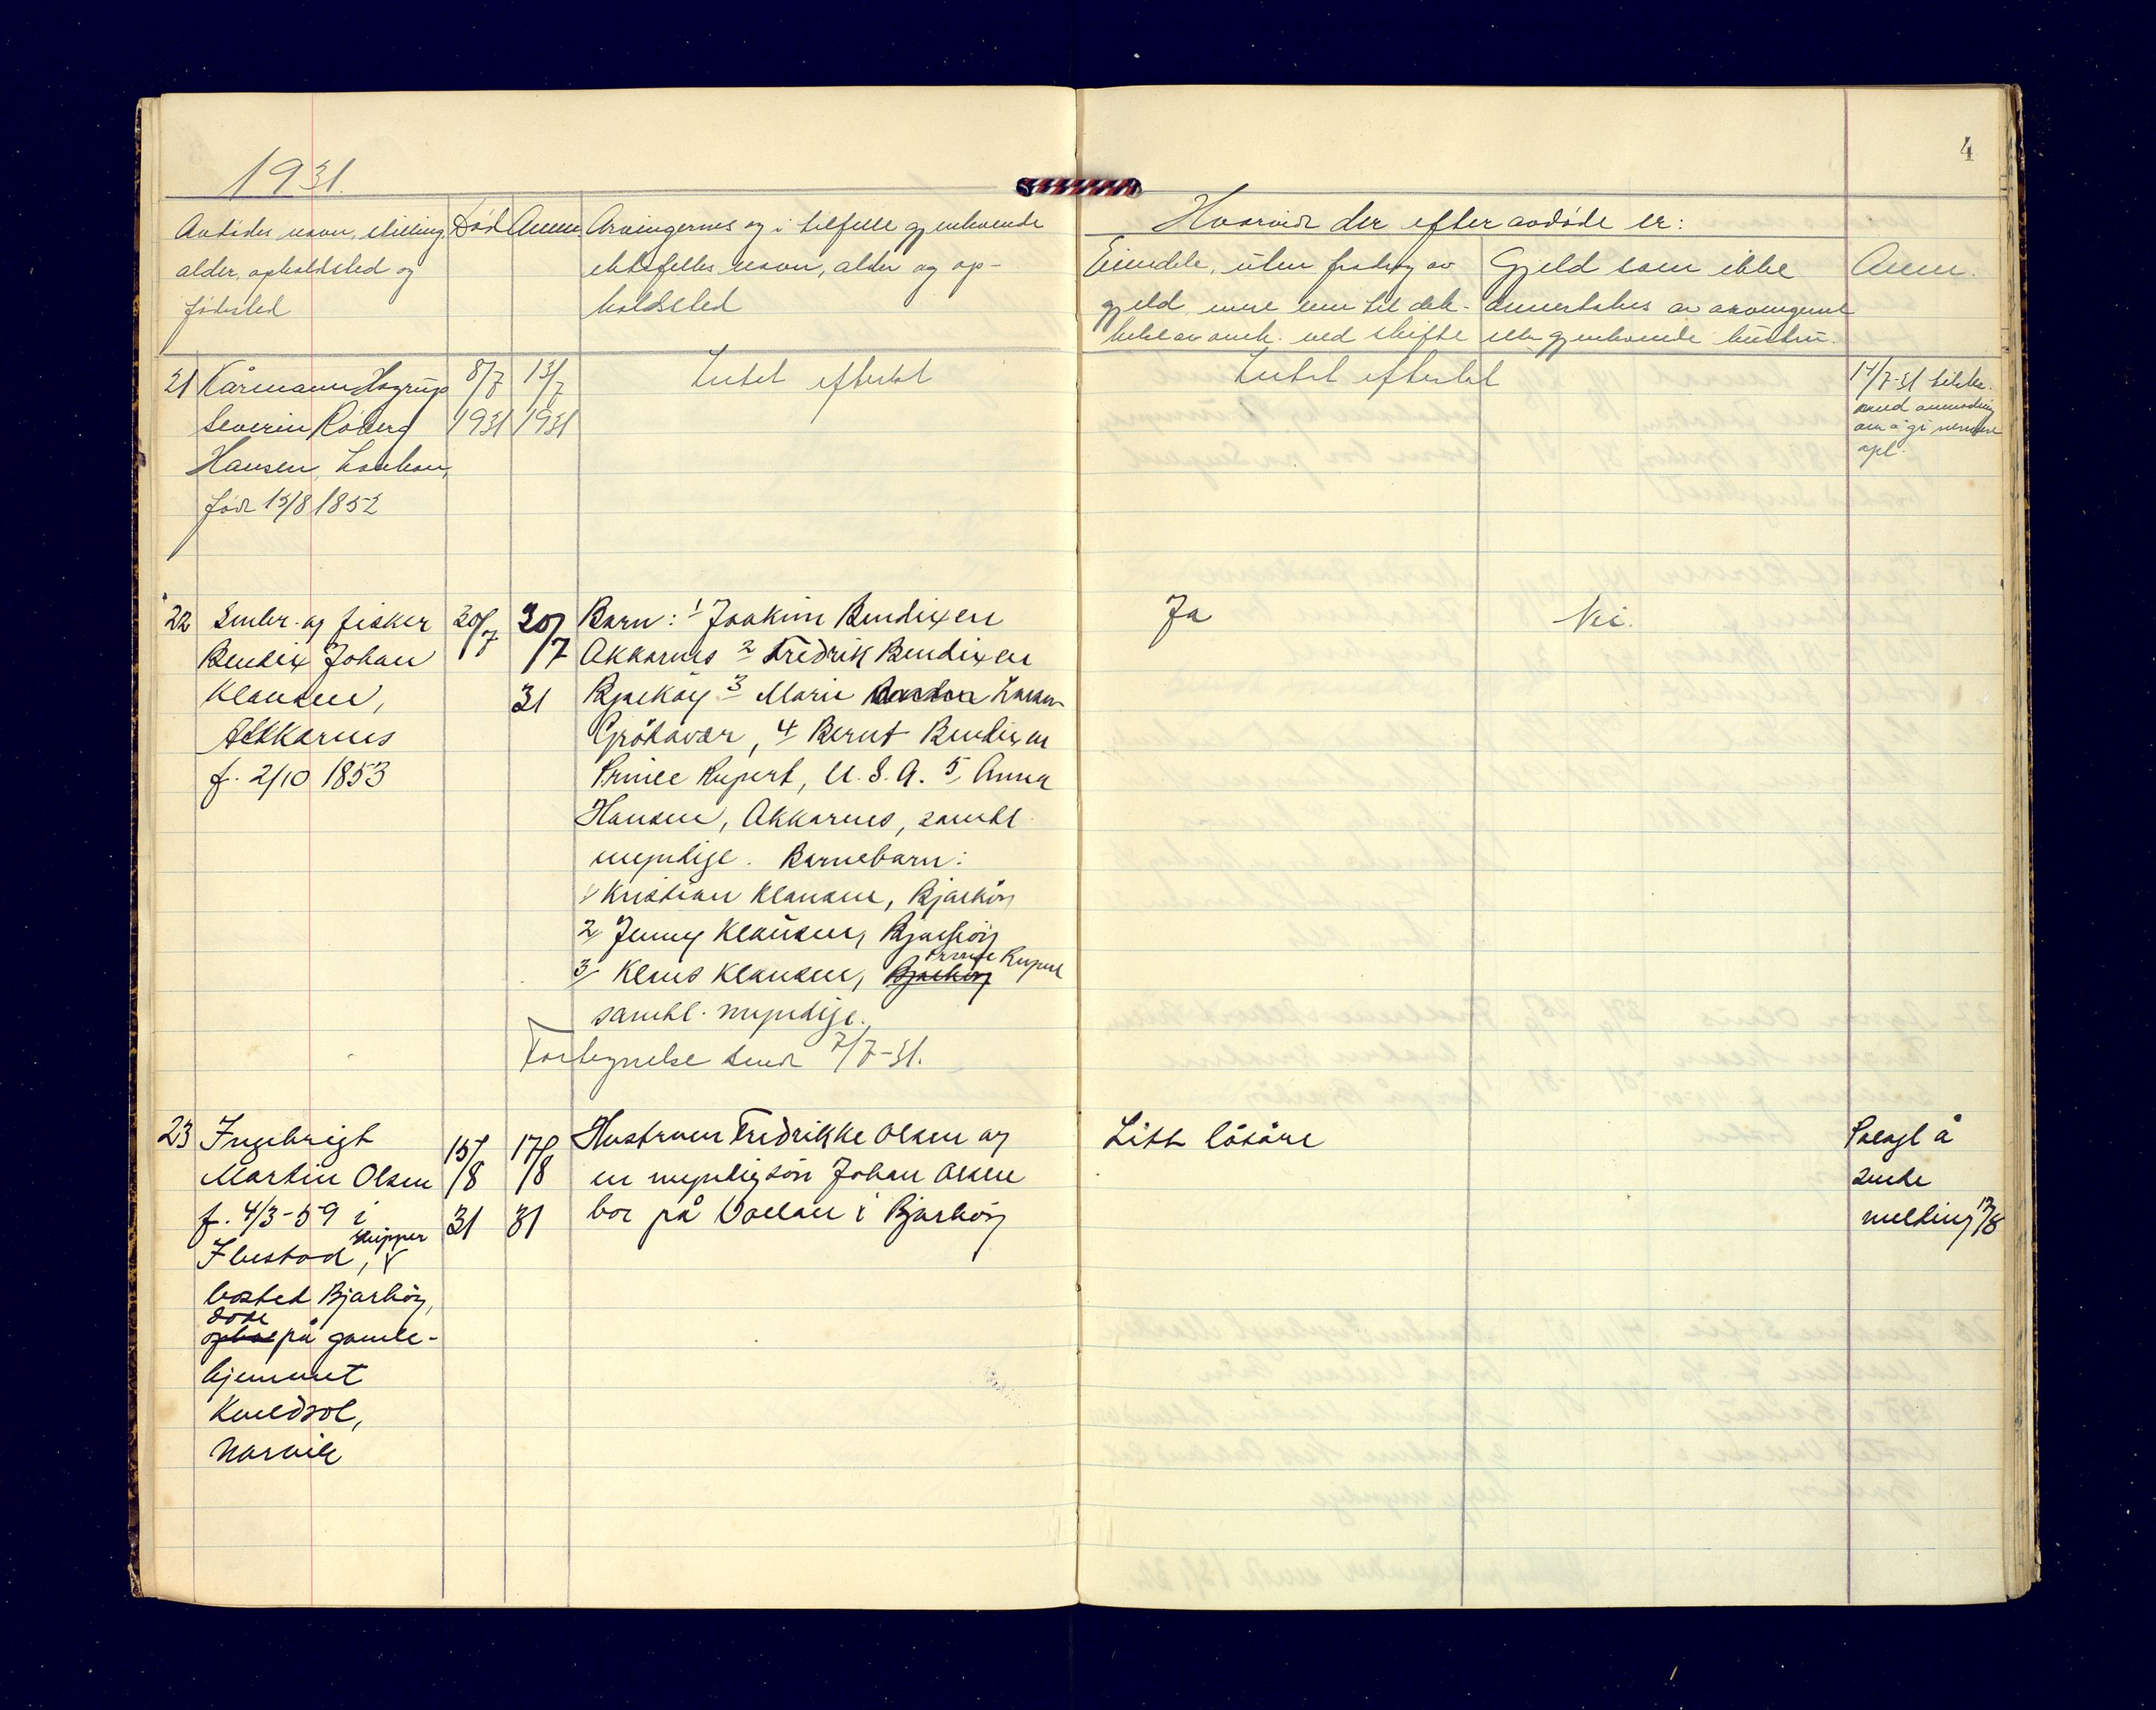 4
1931.
Avdødes navn, stilling,
alder, opholdsted og
fødested
Død
Anm.
Arvingernes og i tilfelle gjenlevende
ektefelles navn, alder og op-
holdssted
Hvorvidt der efter avdøde er:
Eiendele, uten fradrag av
gjeld, mere enn til dek-
ved skifte
Gjeld som ikke
overtakes av arvingerne
eller gjenlevende hustru.
Anm.
21 Kårmann Hagrup
Severin Roberg
Hansen,
født 13/8 1852
8/7
1931
13/7
1931
Intet efterlat
Intet efterlat
14/7-31
med anmodning
om å gi nermere
opl.
22 Småbr. og fisker
Bendix Johan
Klausen,
Akkarnes
f. 2/10 1853
20/7
20/7
31
Barn: 1 Joakim Bendixen
Akkarnes 2 Fredrik Bendixen
Bjarkøy 3 Marie Larsen
Grøtavær, 4 Bernt Bendixen
Prince Rupert, U.S.A. 5 Anna
Hansen, Akkarnes, samtl.
myndige. Barnebarn:
1 Kristian Klausen, Bjarkøy
2 Jenny Klausen, Bjarkøy
3 Klaus Klausen, Bjarkøy Prince Rupert
samtl. myndige.
Fortegnelse sendt 7/7-31.
Ja
Nei.
23 Ingebrigt
Martin Olsen
f. 4/3-59 i
Ibestad, skipper
bosted Bjarkøy,
døde på gamle-
hjemmet
Narvik
15/8
31
17/8
31
Hustruen Fredrikke Olsen og
en myndig søn Johan Olsen
bor på Vollan i Bjarkøy
Litt løsøre
Pålagt å
sende
melding 17/8